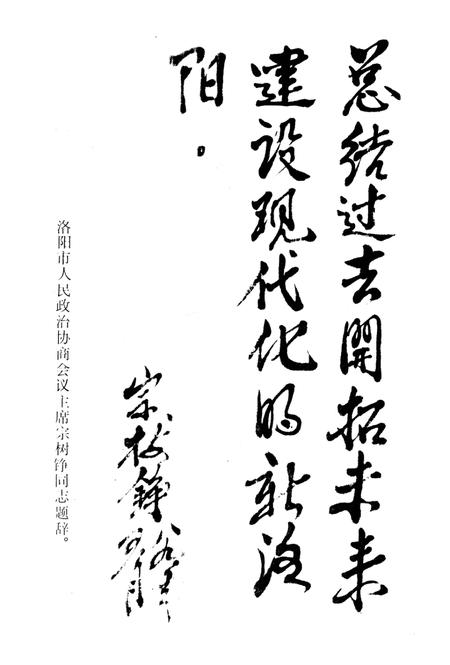 总结过去開拓未来
建设现代化的新洛
阳。
宗树铮
洛阳市人民政治协商会议主席宗树铮同志题辞。